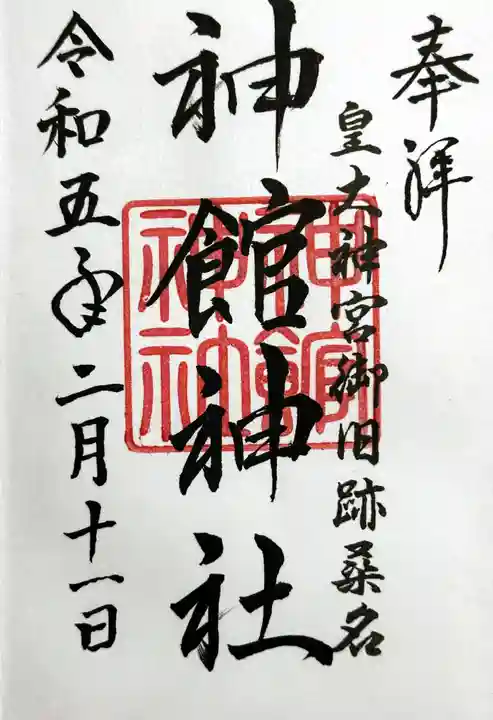 奉拝
皇大神宮御旧跡桑名
神館神社
神館神社
令和五年二月十一日